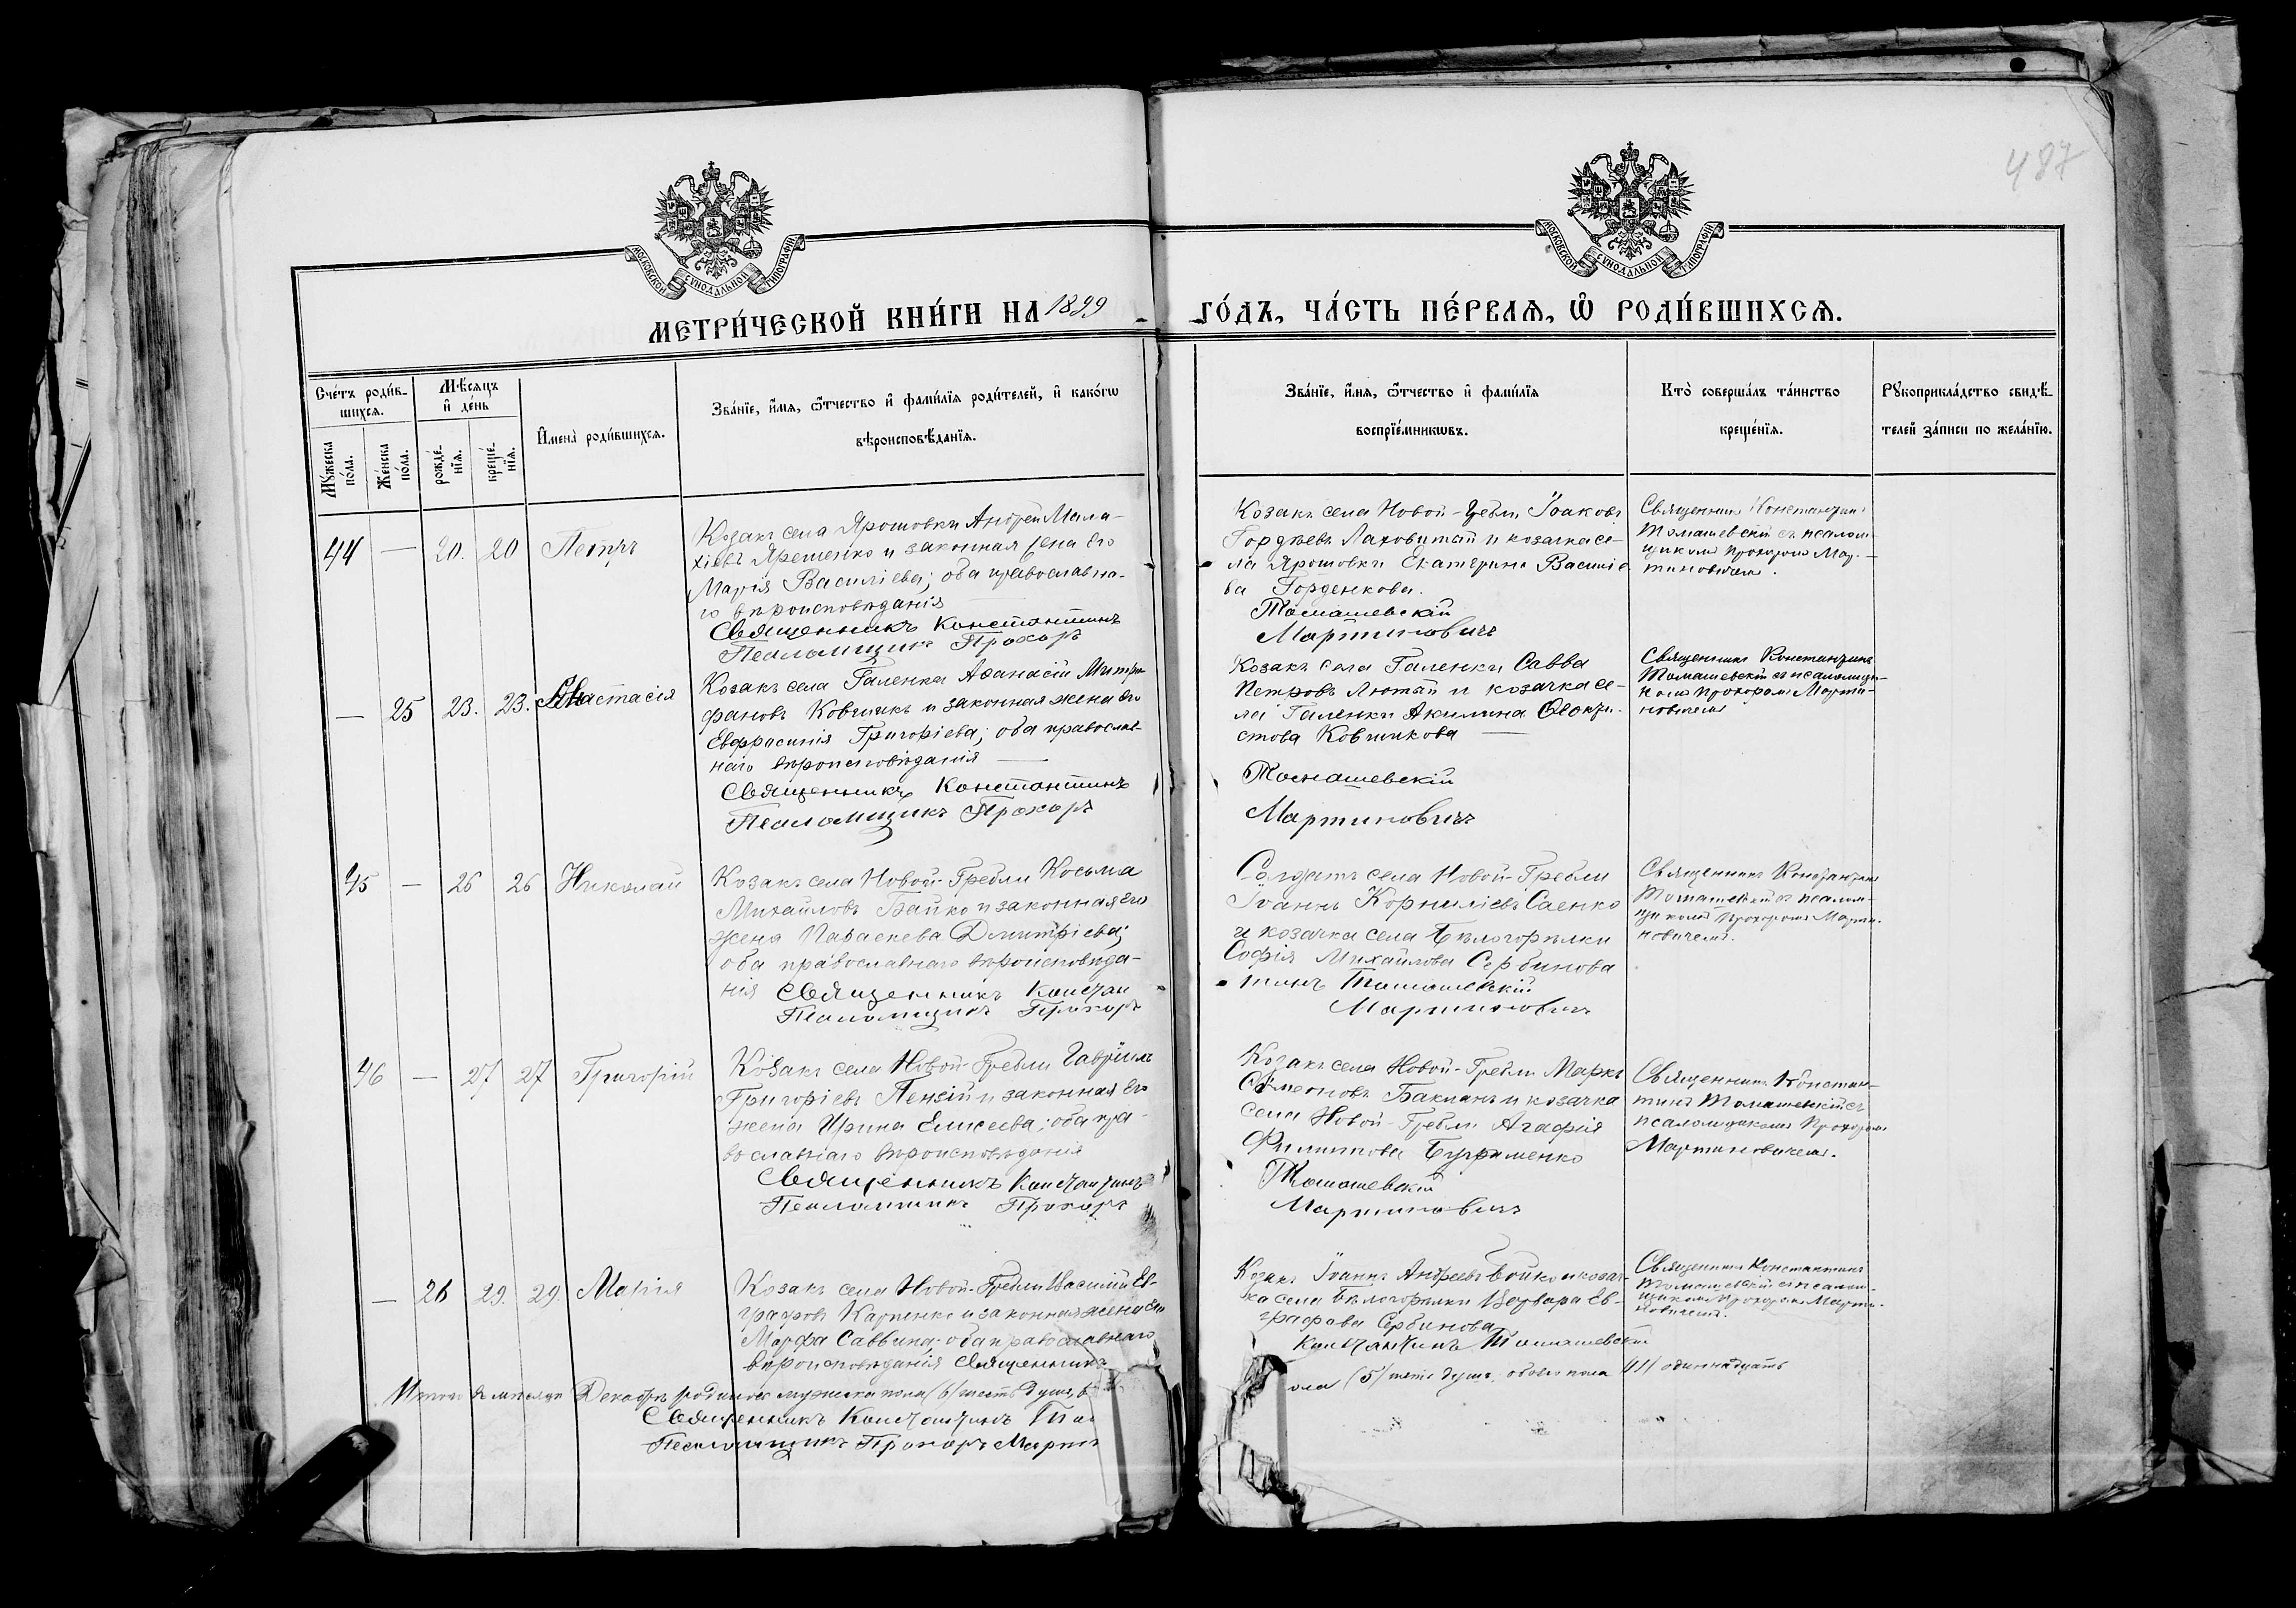 487
МОСКОВСКОЙ СѴНОДАЛЬНОЙ ТИПОГРАФІИ
МОСКОВСКОЙ СѴНОДАЛЬНОЙ ТИПОГРАФІИ
МЕТРИ́ЧЕСКОЙ КНИ́ГИ НА 1899 ГО́ДЪ, ЧА́СТЬ ПЕ́РВАѦ, Ѡ҆ РОДИ́ВШИХСѦ.
Сче́тъ роди́в-
шихсѧ.
Мꙋ́жеска
по́ла.
Же́нска
по́ла.
Мѣ́сѧцъ
и҆ де́нь
рожде́-
нїѧ.
креще́-
нїѧ.
И҆мена̀ роди́вшихсѧ.
Зва́нїе, и҆́мѧ, ѻ҆́тчество и҆ фами́лїѧ роди́телей, и҆ како́гѡ
вѣроисповѣ́данїѧ.
Зва́нїе, и҆́мѧ, ѻ҆́тчество и҆ фами́лїѧ
воспрїе́мникѡвъ.
Кто̀ соверша́лъ та́инство
креще́нїѧ.
Рꙋкоприкла́дство свидѣ́-
телей за́писи по жела́нїю.
44 — 20. 20 Петръ
Козакъ села Ярошовки Андрей Мала-
хіевъ Ярошенко и законная жена его
Марія Василіева; оба православна-
го вѣроисповѣданія
Священникъ Константинъ
Псаломщикъ Прохоръ
Козакъ села Новой-Гребли Іоаковъ
Гордѣевъ Лаховитый и козачка се-
ла Ярошовки Екатерина Василіе
ва Горденкова.
Томашевскій
Мартиновичъ
Священникъ Константинъ
Томашевскій съ псалом-
щикомъ Прохоромъ Мар-
тиновичемъ.
— 25 23. 23. Анастасія
Козакъ села Галенки Аѳанасій Митро
фановъ Ковчикъ и законная жена его
Евфросинія Григоріева; оба православ-
наго вѣроисповѣданія
Священникъ Константинъ
Псаломщикъ Прохоръ
Козакъ села Галенки Савва
Петровъ Лютый и козачка се-
ла Галенки Акилина Ѳеокти-
стова Ковчикова
Томашевскій
Мартиновичъ
Священникъ Константинъ
Томашевскій съ псаломщи-
комъ Прохоромъ Марти-
новичемъ
45 — 26 26 Николай
Козакъ села Новой-Гребли Косьма
Михайловъ Бойко и законная его
жена Параскева Димитріева;
оба православнаго вѣроисповѣда-
нія Священникъ Констан
Псаломщикъ Прохоръ
Солдатъ села Новой-Гребли
Іоаннъ Корниліевъ Саенко
и козачка села Бѣлогорѣлки
Софія Михайлова Сербинова
тинъ Томашевскій
Мартиновичъ
Священникъ Константинъ
Томашевскій съ псалом-
щикомъ Прохоромъ Марти-
новичемъ.
46 — 27 27 Григорій
Козакъ села Новой-Гребли Гавріилъ
Григоріевъ Пензій и законная его
жена Ирина Елисеева; оба пра-
вославнаго вѣроисповѣданія
Священникъ Константинъ
Псаломщикъ Прохоръ
Козакъ села Новой-Гребли Маркъ
Симеоновъ Бакланъ и козачка
села Новой-Гребли Агафія
Филиппова Бугрименко
Томашевскій
Мартиновичъ
Священникъ Констан-
тинъ Томашевскій съ
псаломщикомъ Прохоромъ
Мартиновичемъ.
— 26 29. 29. Марія
Козакъ села Новой-Гребли Василій Ев-
графовъ Карпенко и законная жена его
Марфа Саввина; оба православнаго
вѣроисповѣданія Священникъ
Козакъ Іоаннъ Андреевъ Бойко и козач-
ка села Бѣлогорѣлки Варвара Ев-
графова Сербинова
Константинъ Томашевскій
Священникъ Константинъ
Томашевскій съ псалом-
щикомъ Прохоромъ Марти-
новичемъ.
Итого въ мѣсяцѣ Декабрѣ родилось мужеска пола (6) шесть душъ,
ола (5) пять душъ, обоего пола (11) одиннадцать
Священникъ Константинъ Том
Псаломщикъ Прохоръ Марти